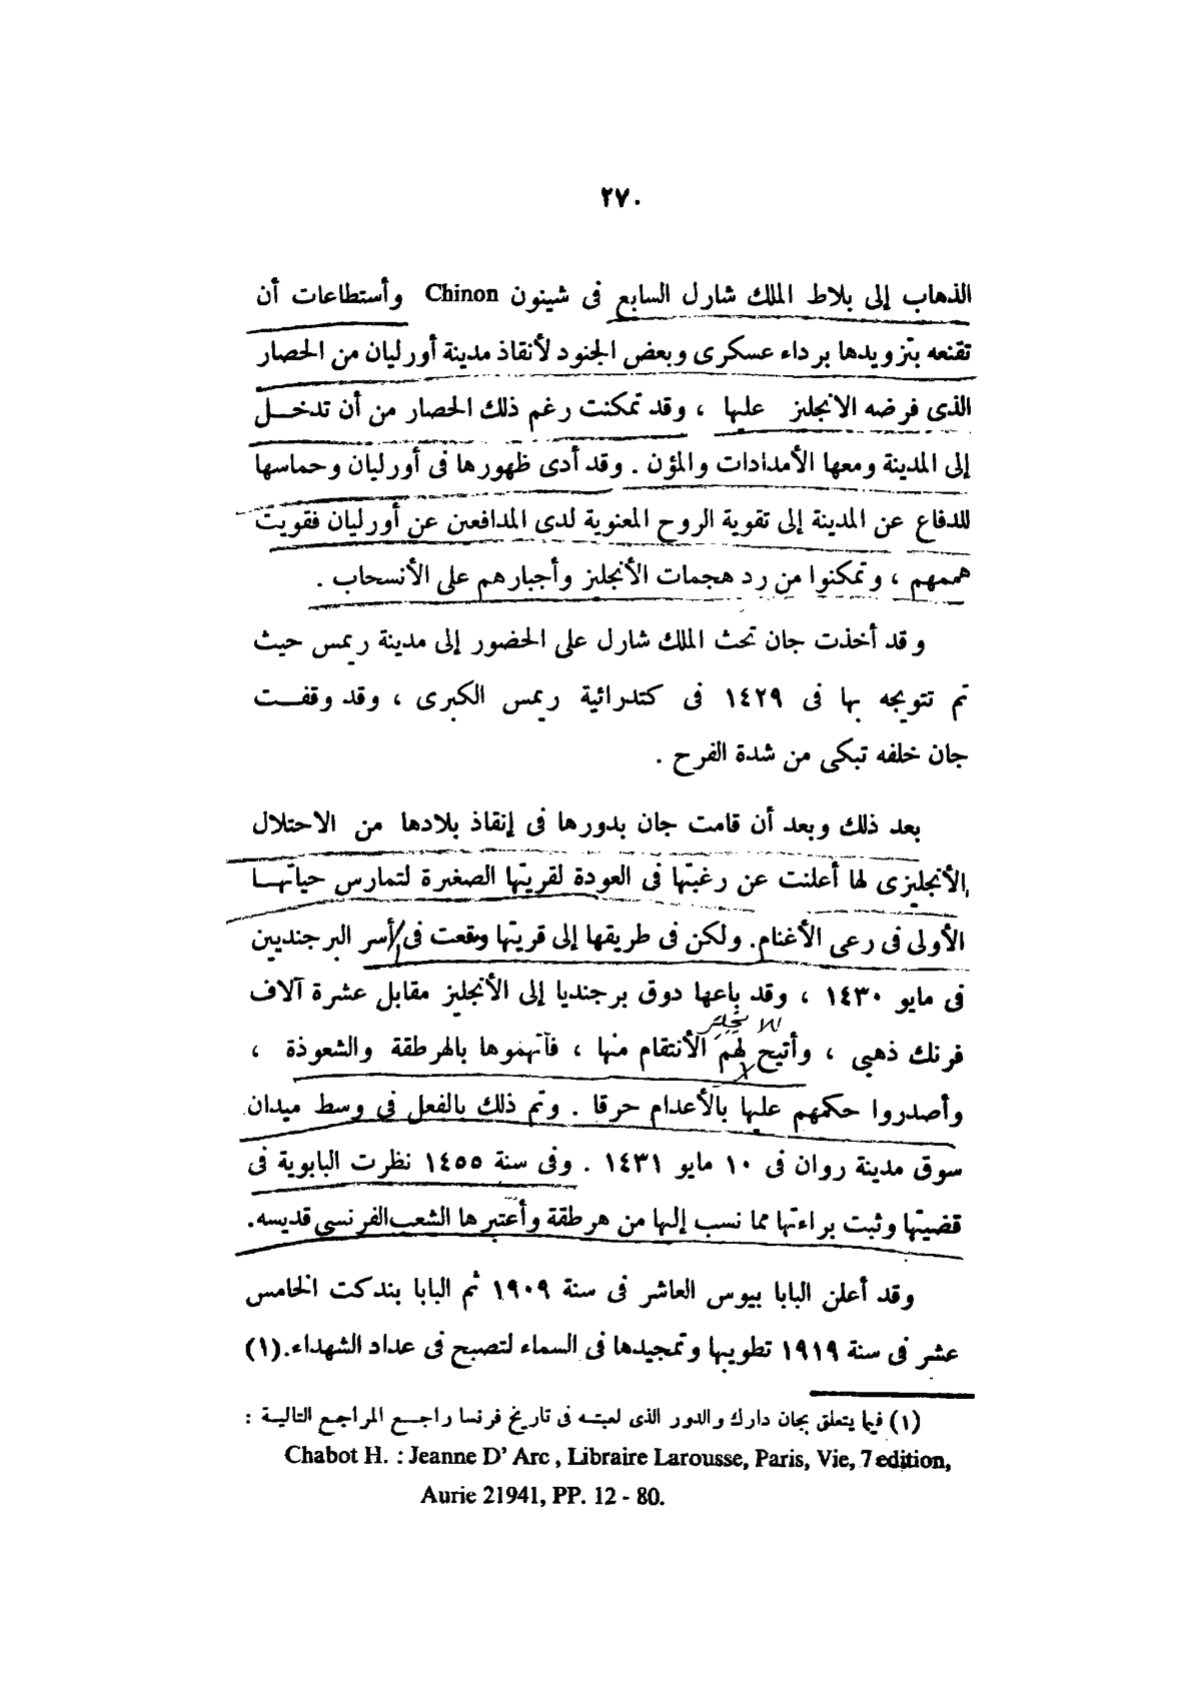 ٢٧٠
الذهاب إلى بلاط الملك شارل السابع فى شينون Chinon وأستطاعات أن
تقنعه بتزويدها برداء عسكرى وبعض الجنود لأنقاذ مدينة أورليان من الحصار
الذى فرضه الانجليز عليها ، وقد تمكنت رغم ذلك الحصار من أن تدخل
إلى المدينة ومعها الأمدادات والمؤن . وقد أدى ظهورها فى أورليان وحماسها
للدفاع عن المدينة إلى تقوية الروح المعنوية لدى المدافعين عن أورليان فقويت
هممهم ، وتمكنوا من رد هجمات الأنجليز وأجبارهم على الأنسحاب .
وقد أخذت جان تحث الملك شارل على الحضور إلى مدينة ريمس حيث
تم تتويجه بها فى ١٤٢٩ فى كتدرائية ريمس الكبرى ، وقد وقفت
جان خلفه تبكى من شدة الفرح .
بعد ذلك وبعد أن قامت جان بدورها فى إنقاذ بلادها من الاحتلال
الأنجليزى لها أعلنت عن رغبتها فى العودة لقريتها الصغيرة لتمارس حياتها
الأولى فى رعى الأغنام. ولكن فى طريقها إلى قريتها وقعت فى أسر البرجنديين
فى مايو ١٤٣٠ ، وقد باعها دوق برجنديا إلى الأنجليز مقابل عشرة آلاف
للانجليز
فرنك ذهبى ، وأتيح لهم الأنتقام منها ، فآتهموها بالهرطقة والشعوذة ،
وأصدروا حكمهم عليها بالأعدام حرقا . وتم ذلك بالفعل فى وسط ميدان
سوق مدينة روان فى ١٠ مايو ١٤٣١ . وفى سنة ١٤٥٥ نظرت البابوية فى
قضيتها وثبت براءتها مما نسب إليها من هرطقة وأعتبرها الشعب الفرنسى قديسه.
وقد أعلن البابا بيوس العاشر فى سنة ١٩٠٩ ثم البابا بندكت الخامس
عشر فى سنة ١٩١٩ تطويبها وتمجيدها فى السماء لتصبح فى عداد الشهداء.(١)
(١) فيما يتعلق بجان دارك والدور الذى لعبته فى تاريخ فرنسا راجع المراجع التالية :
Chabot H. : Jeanne D' Arc , Libraire Larousse, Paris, Vie, 7 edition,
Aurie 21941, PP. 12 - 80.